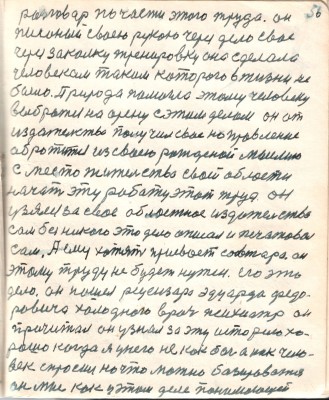 56
разговар по части этого труда. он
писаный своею рукою через дело свае
через закалку тренировку оно сделала
человекам таким которого в жизни не
было. Природа помогла этому человеку
выбратся на арену с этим делом он от
издательства получил свае направление
обротится из своею рожденой мыслию
с место жительства своей области
начать эту работу этот труд. он
узялся за свое областное издательство
сам без никого это дело описал и печатовал
сам, А ему хотят привоет соавтара, он
этому труду не будет нужен. его это
дело, он пошел рецензара эдуарда федо-
ровича холодного врач психиатр он
прочитал он узнал за эту историю хо-
рошо когда я у него не как бог а как чело-
век спросил на что можно базироватся
он мне как у этом деле понимающей